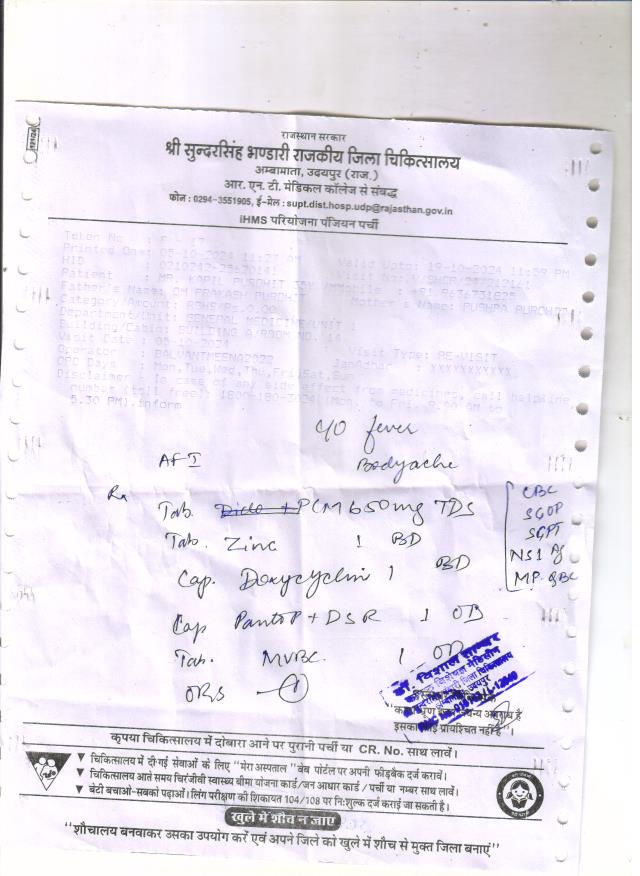 राजस्थान सरकार
श्री सुन्दरसिंह भण्डारी राजकीय जिला चिकित्सालय
अम्बामाता, उदयपुर (राज.)
आर. एन. टी. मेडिकल कॉलेज से संबद्ध
फोन : 0294-3551905, ई-मेल : supt.dist.hosp.udp@rajasthan.gov.in
iHMS परियोजना पंजियन पर्ची
Token No :
Printed On: 05-10-2024 11:27 AM Valid Upto: 19-10-2024 11:59 PM
HID :
Patient : MR. KAPIL PUROHIT Mobile : +91 9636731825
Father's Name: OM PRAKASH PUROHIT Mother's Name: PUSHPA PUROHIT
Category/Amount: RGHS/Rs.0.00
Department/Unit: GENERAL MEDICINE/UNIT 1
Building/Cabin: BUILDING A/ROOM NO. 14
Visit Date : 05-10-2024 Visit Type: RE-VISIT
Operator : BALVANTMEENA2022 JanAdhar : XXXXXXXXXX
OPD Days : Mon,Tue,Wed,Thu,Fri,Sat,Sun
Disclaimer : In case of any side effect from medicines, call helpline
number (toll free): 1800-180- (Mon. to Fri. to
5.30 PM).inform
C/O fever
AFI Bodyache
Rx
Tab. Diclo + PCM 650mg TDS
Tab. Zinc 1 BD
Cap. Doxycyclin 1 BD
Cap PantoP + DSR 1 OD
Tab. MVBC. 1 OD
ORS 1
CBC
SGOP
SGPT
NS1 Ag
MP. QBC
डॉ. विशाल
मेडिसीन
उदयपुर
इसका कोई प्रायश्चित नहीं है"।
कृपया चिकित्सालय में दोबारा आने पर पुरानी पर्ची या CR. No. साथ लावें।
▼ चिकित्सालय में दी गई सेवाओं के लिए "मेरा अस्पताल" वेब पोर्टल पर अपनी फीडबैक दर्ज करावें।
▼ चिकित्सालय आते समय चिरंजीवी स्वास्थ्य बीमा योजना कार्ड/जन आधार कार्ड / पर्ची या नम्बर साथ लावें।
▼ बेटी बचाओ-सबको पढ़ाओ। लिंग परीक्षण की शिकायत 104/108 पर निःशुल्क दर्ज कराई जा सकती है।
खुले में शौच न जाए
"शौचालय बनवाकर उसका उपयोग करें एवं अपने जिले को खुले में शौच से मुक्त जिला बनाएं"